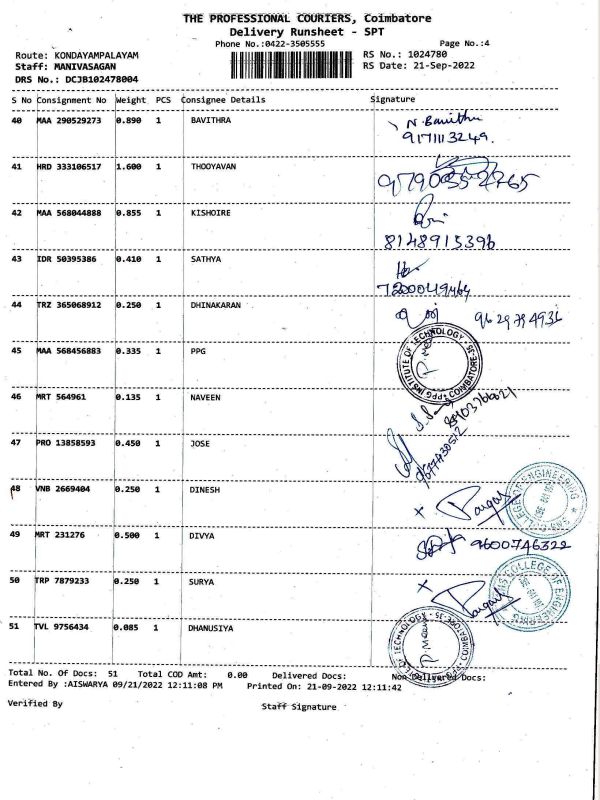 THE PROFESSIONAL COURIERS, Coimbatore
Delivery Runsheet - SPT
Phone No.:0422-3505555 Page No.:4
Route: KONDAYAMPALAYAM RS No.: 1024780
Staff: MANIVASAGAN RS Date: 21-Sep-2022
DRS No.: DCJB102478004
S No Consignment No Weight PCS Consignee Details Signature
40 MAA 290529273 0.890 1 BAVITHRA N. Bavithra
9171113249.
41 HRD 333106517 1.600 1 THOOYAVAN
42 MAA 568044888 0.855 1 KISHOIRE
8148915396
43 IDR 50395386 0.410 1 SATHYA
7200049464
44 TRZ 365068912 0.250 1 DHINAKARAN 9629794931
45 MAA 568456883 0.335 1 PPG
PPG INSTITUTE OF TECHNOLOGY COIMBATORE-35
46 MRT 564961 0.135 1 NAVEEN
47 PRO 13858593 0.450 1 JOSE
48 VNB 2669404 0.250 1 DINESH
SNS COLLEGE OF ENGINEERING
49 MRT 231276 0.500 1 DIVYA 9600746322
50 TRP 7879233 0.250 1 SURYA
SNS COLLEGE OF ENGINEERING
51 TVL 9756434 0.085 1 DHANUSIYA
TECHNOLOGY COIMBATORE-35
Total No. Of Docs: 51 Total COD Amt: 0.00 Delivered Docs: Non Delivered Docs:
Entered By :AISWARYA 09/21/2022 12:11:08 PM Printed On: 21-09-2022 12:11:42
Verified By Staff Signature